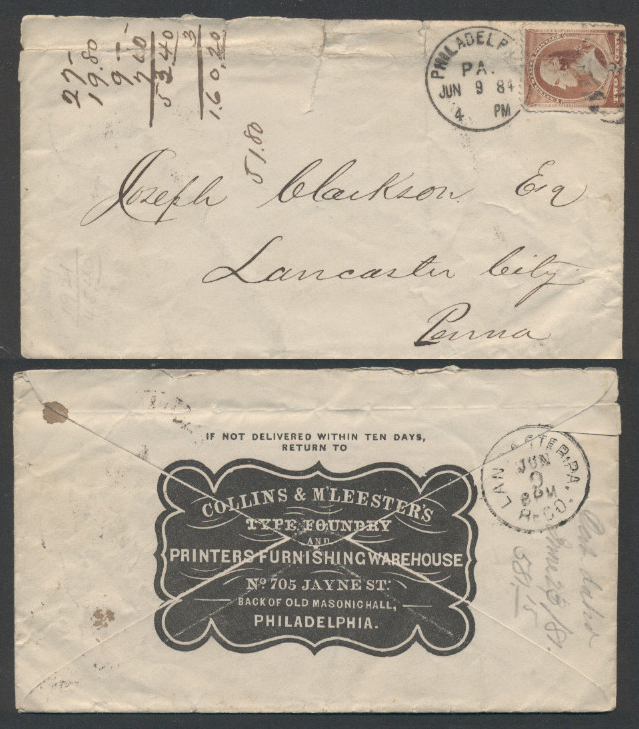 27 —
19.80
9 —
7.60
53.40
3
1.60,20
51.80
PHILADELP
PA.
JUN 9 84
4 PM
Joseph Clarkson Esq
Lancaster City
Penna
IF NOT DELIVERED WITHIN TEN DAYS,
RETURN TO
COLLINS & M'LEESTER'S
TYPE FOUNDRY
AND
PRINTERS FURNISHING WAREHOUSE
No 705 JAYNE ST.
BACK OF OLD MASONIC HALL,
PHILADELPHIA.
LANCASTER, PA.
JUN
9
8 PM
REC'D.